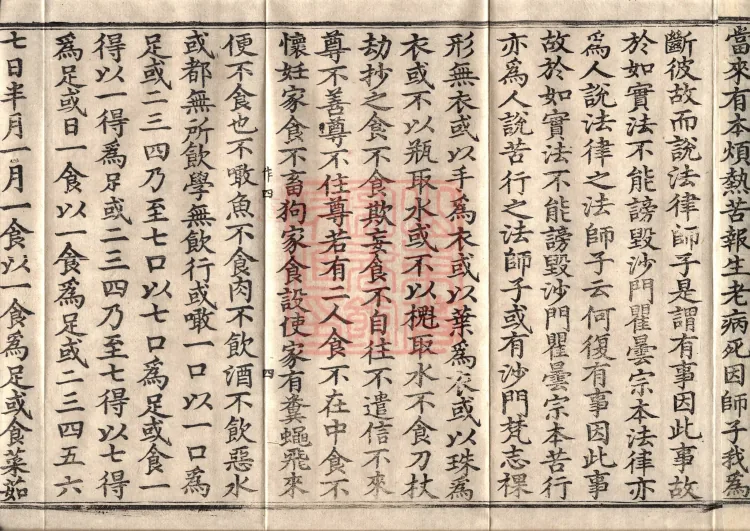 當來有本煩熱苦報生老病死因師子我爲
斷彼故而說法律師子是謂有事因此事故
於如實法不能謗毀沙門瞿曇宗本法律亦
爲人說法律之法師子云何復有事因此事
故於如實法不能謗毀沙門瞿曇宗本苦行
亦爲人說苦行之法師子或有沙門梵志裸
形無衣或以手爲衣或以葉爲衣或以珠爲
衣或不以瓶取水或不以櫆取水不食刀杖
劫抄之食不食欺妄食不自往不遣信不來
尊不善尊不住尊若有二人食不在中食不
懷妊家食不畜狗家食設使家有糞蠅飛來
便不食也不噉魚不食肉不飲酒不飲惡水
或都無所飲學無飲行或噉一口以一口爲
足或二三四乃至七口以七口爲足或食一
得以一得爲足或二三四乃至七得以七得
爲足或日一食以一食爲足或二三四五六
七日半月一月一食以一食爲足或食菜茹
作四
四